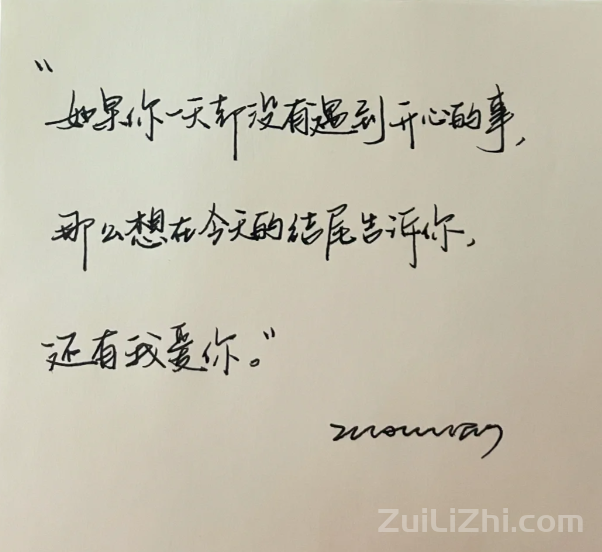 “如果你一天都没有遇到开心的事，
那么想在今天的结尾告诉你，
还有我爱你。”
ZuiLiZhi.com